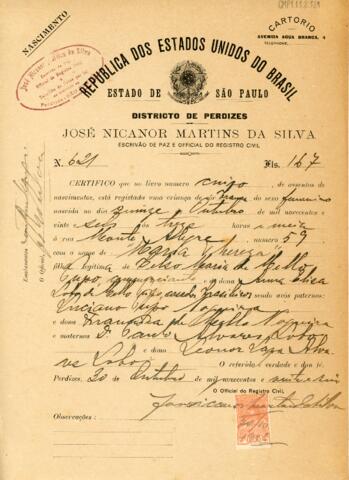 NASCIMENTO
CARTORIO
AVENIDA AGUA BRANCA, 4
TELEPHONE
José Nicanor M. da Silva
REPUBLICA DOS ESTADOS UNIDOS DO BRASIL
ESTADO DE SÃO PAULO
DISTRICTO DE PERDIZES
JOSÉ NICANOR MARTINS DA SILVA
ESCRIVÃO DE PAZ E OFFICIAL DO REGISTRO CIVIL
N. 621 Fls. 167
CERTIFICO que no livro numero cinco, de assentos de
nascimentos, está registrada uma criança de côr branca do sexo feminino
nascida no dia quinze Outubro de mil novecentos e
vinte seis ás dez horas e meia
á rua Monte Alegre numero 59
com o nome de "Maria Thereza"
filha legitima de Maria de Mello
Pupo, e dona Anna
Lobo de Mello Pupo, sendo avós paternos:
Luciano Pupo Nogueira
e dona de Mello Nogueira
e maternos Dr. Paulo Alvares Lobo
e dona Leonor Alva
res Lobo O referido é verdade e dou fé.
Perdizes, 20 de Outubro de mil novecentos e vinte e seis
O Official do Registro Civil,
José Nicanor Martins da Silva
Observações :
Emolumentos
O Official